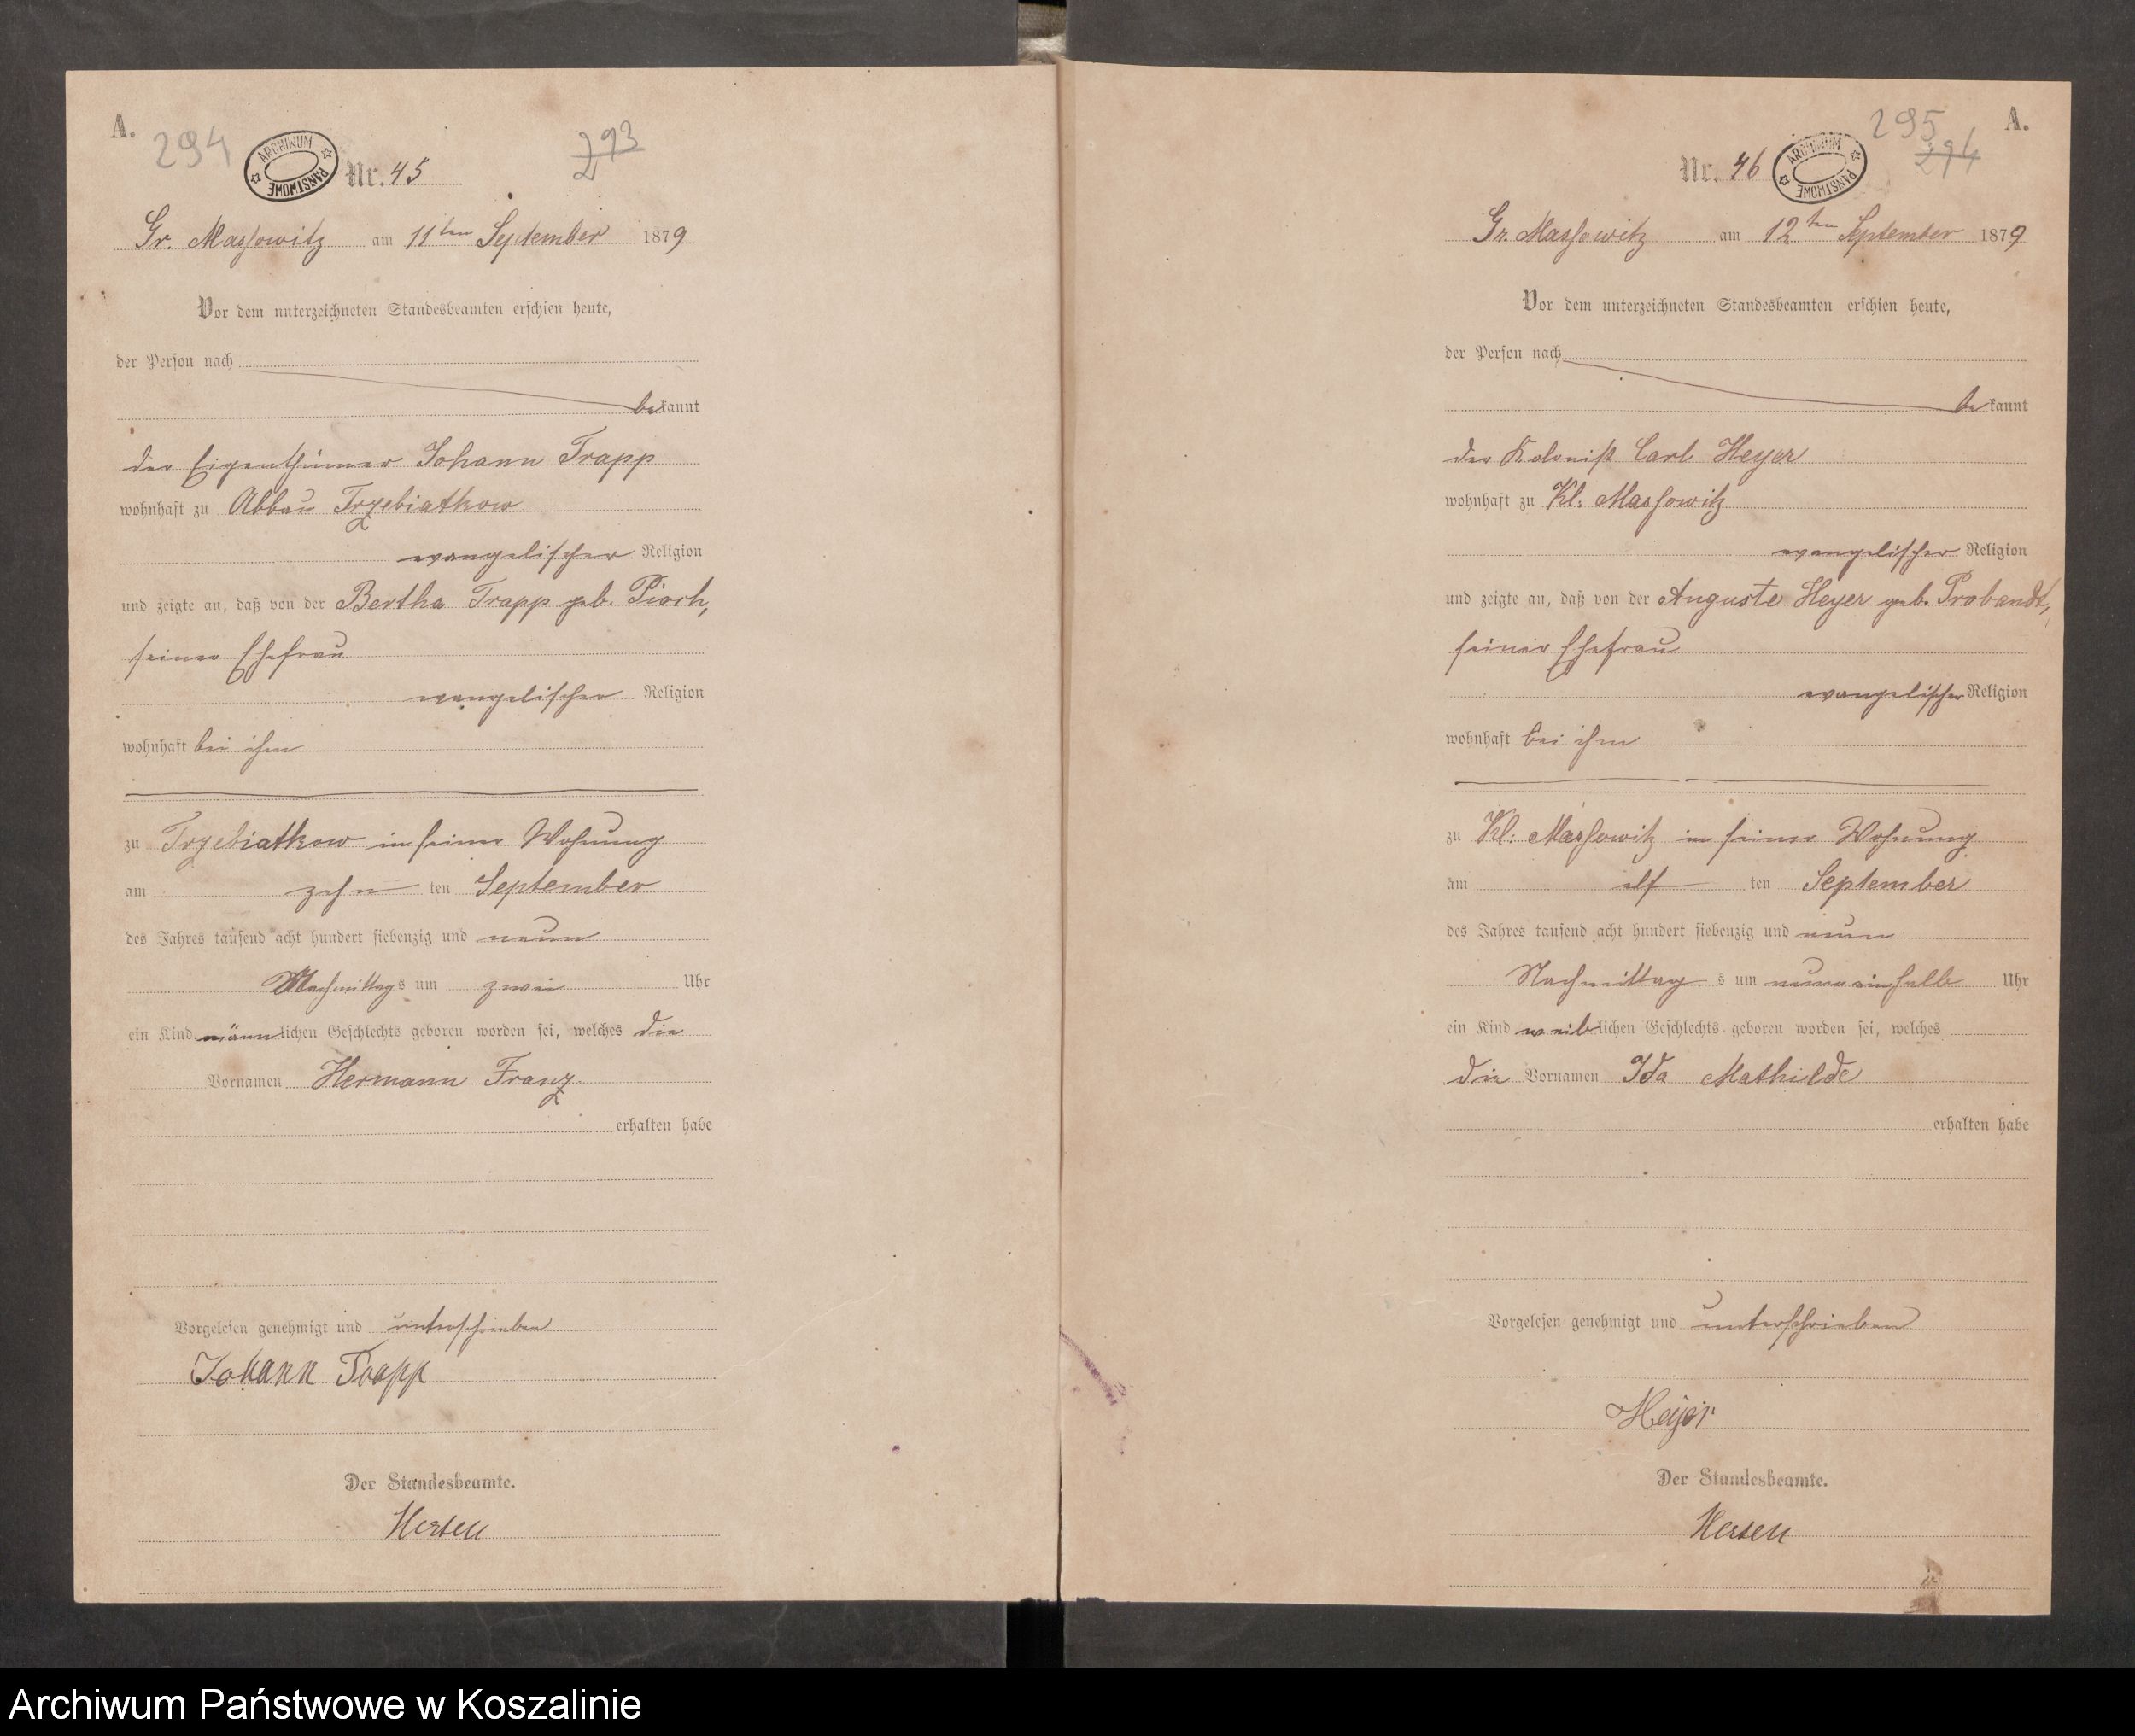 A.
294
293
ARCHIWUM PAŃSTWOWE
Nr. 45
Gr. Massowitz am 11ten September 1879
Vor dem unterzeichneten Standesbeamten erschien heute,
der Person nach
bekannt
der Eigenthümer Johann Trapp
wohnhaft zu Abbau Trzebiatkow
evangelischer Religion
und zeigte an, daß von der Bertha Trapp geb. Pioch,
seiner Ehefrau
evangelischer Religion
wohnhaft bei ihm
zu Trzebiatkow in seiner Wohnung
am zehn ten September
des Jahres tausend acht hundert siebenzig und neun
Nachmittags um zwei Uhr
ein Kind männlichen Geschlechts geboren worden sei, welches die
Vornamen Hermann Franz
erhalten habe
Vorgelesen genehmigt und unterschrieben
Johann Trapp
Der Standesbeamte.
295
A.
294
Nr. 46
ARCHIWUM PAŃSTWOWE
Gr. Massowitz am 12ten September 1879
Vor dem unterzeichneten Standesbeamten erschien heute,
der Person nach
bekannt
der Kolonist Carl Heyer
wohnhaft zu Kl: Massowitz
evangelischer Religion
und zeigte an, daß von der Auguste Heyer geb. Probandt,
seiner Ehefrau
evangelischer Religion
wohnhaft bei ihm
zu Kl: Massowitz in seiner Wohnung
am elf ten September
des Jahres tausend acht hundert siebenzig und neun
Nachmittag s um neuneinhalb Uhr
ein Kind weiblichen Geschlechts geboren worden sei, welches
die Vornamen Ida Mathilde
erhalten habe
Vorgelesen genehmigt und unterschrieben
Heijer
Der Standesbeamte.
Archiwum Państwowe w Koszalinie